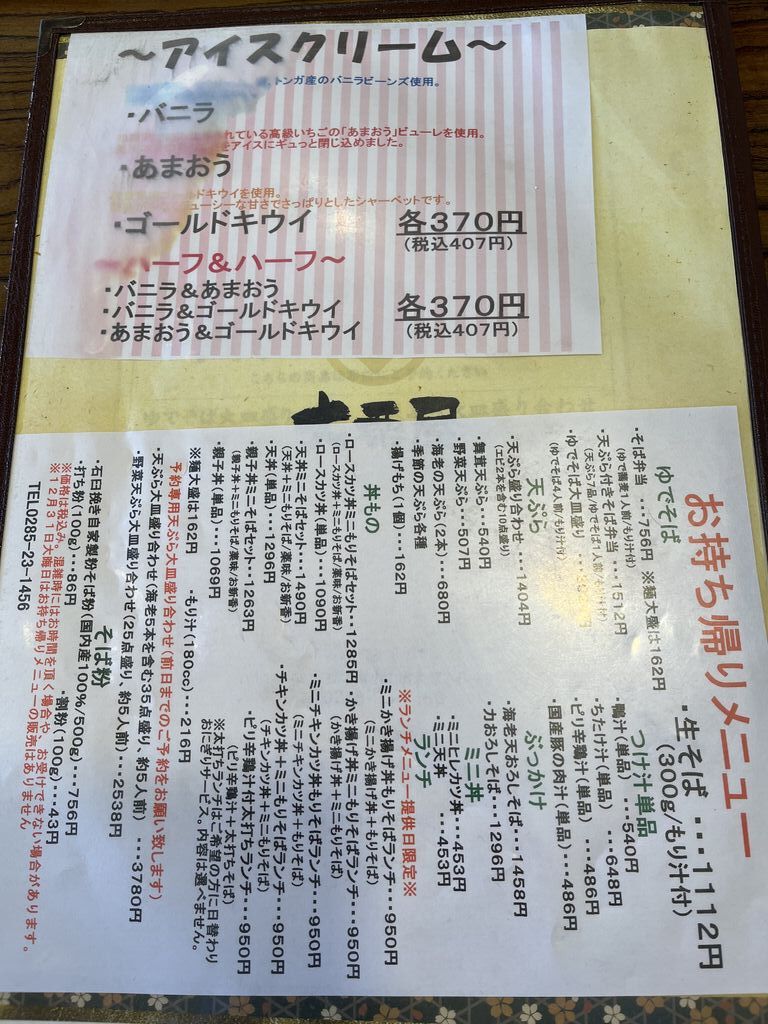 ～アイスクリーム～
トンガ産のバニラビーンズ使用。
・バニラ
れている高級いちごの「あまおう」ピューレを使用。
をアイスにギュっと閉じ込めました。
・あまおう
ドキウイを使用。
ューシーな甘さでさっぱりとしたシャーベットです。
・ゴールドキウイ 各370円
(税込407円)
～ハーフ&ハーフ～
・バニラ&あまおう
・バニラ&ゴールドキウイ 各370円
・あまおう&ゴールドキウイ (税込407円)
お持ち帰りメニュー
・生そば・・・1112円
(300g/もり汁付)
ゆでそば
・そば弁当 ・・・756円 ※麺大盛は162円
(ゆで蕎麦1人前/もり汁付)
・天ぷら付きそば弁当 ・・・1512円
(天ぷら7品/ゆでそば1人前/もり汁付)
・ゆでそば大皿盛り
(ゆでそば4人前/もり汁付)
天ぷら
・天ぷら盛り合わせ・・・1404円
(エビ2本を含む10品盛り)
・舞茸天ぷら・・・540円
・野菜天ぷら・・・507円
・海老の天ぷら(2本)・・・680円
・季節の天ぷら各種
・揚げもち(1個)・・・162円
丼もの
・ロースカツ丼ミニもりそばセット・・・1285円
(ロースカツ丼+ミニもりそば/薬味/お新香)
・ロースカツ丼(単品)・・・1090円
・天丼ミニそばセット・・・1490円
(天丼+ミニもりそば/薬味/お新香)
・天丼(単品)・・・1296円
・親子丼ミニそばセット・・・1263円
(親子丼+ミニもりそば/薬味/お新香)
・親子丼(単品)・・・1069円
※麺大盛は162円 ・もり汁(180cc)・・・216円
つけ汁単品
・鴨汁(単品)・・・540円
・ちたけ汁(単品)・・・648円
・ピリ辛鶏汁(単品)・・・486円
・国産豚の肉汁(単品)・・・486円
ぶっかけ
・海老天おろしそば・・・1458円
・力おろしそば・・・1296円
ミニ丼
・ミニヒレカツ丼・・・453円
・ミニ天丼 ・・・453円
ランチ
※ランチメニュー提供日限定※
・ミニかき揚げ丼もりそばランチ・・・950円
(ミニかき揚げ丼+もりそば)
・かき揚げ丼ミニもりそばランチ・・・950円
(かき揚げ丼+ミニもりそば)
・ミニチキンカツ丼もりそばランチ・・・950円
(ミニチキンカツ丼+もりそば)
・チキンカツ丼+ミニもりそばランチ・・・950円
(チキンカツ丼+ミニもりそば)
・ピリ辛鶏汁付太打ちランチ・・・950円
(ピリ辛鶏汁+太打ちそば)
※太打ちランチはご希望の方に日替わり
おにぎりサービス。内容は選べません。
予約専用天ぷら大皿盛り合わせ(前日までのご予約をお願い致します)
・天ぷら大皿盛り合わせ(海老5本を含む35点盛り、約5人前) ・・・3780円
・野菜天ぷら大皿盛り合わせ(25点盛り、約5人前)・・・2538円
そば粉
・石臼挽き自家製粉そば粉(国内産100%/500g)・・・756円
・打ち粉(100g)・・・86円 ・割粉(100g)・・・43円
※価格は税込み。混雑時にはお時間を頂く場合や、お受けできない場合があります。
※12月31日大晦日はお持ち帰りメニューの販売はありません
TEL0285-23-1456